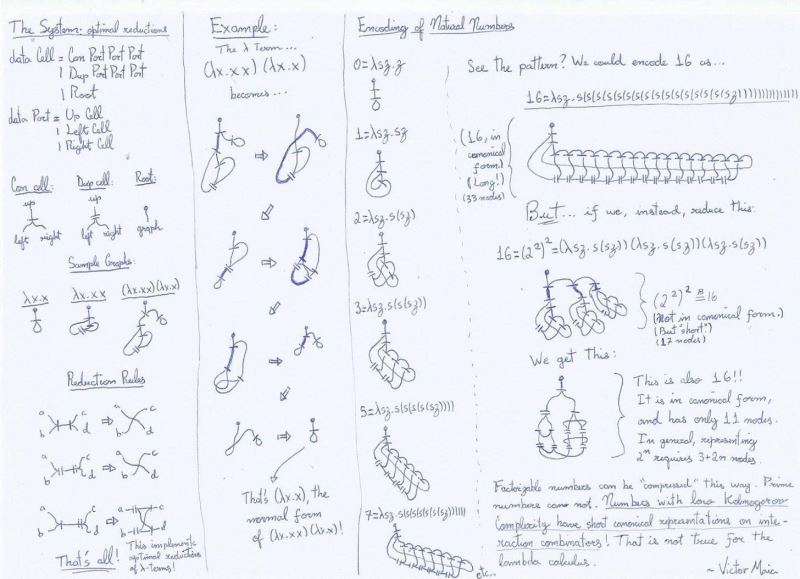 The System: optimal reductions
data Cell = Con Port Port Port
| Dup Port Port Port
| Root
data Port = Up Cell
| Left Cell
| Right Cell
Con cell:
Dup cell:
Root:
up
up
left right
left right
graph
Sample Graphs
λx.x
λx.xx
(λx.xx)(λx.x)
Reduction Rules
a c
b d
a c
b d
a c
b d
a c
b d
a c
b d
a c
b d
That's all!
This implements
optimal reductions
of λ-terms!
Example:
The λ Term...
(λx.x x) (λx.x)
becomes...
That's (λx.x), the
normal form
of (λx.xx)(λx.x)!
Encoding of Natural Numbers
0=λsz.z
1=λsz.sz
2=λsz.s(sz)
3=λsz.s(s(sz))
5=λsz.s(s(s(s(sz))))
7=λsz.s(s(s(s(s(s(sz))))))
etc...
See the pattern? We could encode 16 as...
16=λsz.s(s(s(s(s(s(s(s(s(s(s(s(s(s(s(sz)))))))))))))))
(16, in
canonical
form.)
(Long!)
(33 nodes)
But... if we, instead, reduce this:
16=(2²)²=(λsz.s(sz))(λsz.s(sz))(λsz.s(sz))
(2²)² ≝ 16
(Not in canonical form.)
(But "short!")
(17 nodes)
We get This:
This is also 16!!
It is in canonical form,
and has only 11 nodes.
In general, representing
2ⁿ requires 3+2n nodes.
Factorizable numbers can be "compressed" this way. Prime
numbers can not. Numbers with low Kolmogorov
Complexity have short canonical representations on inte-
raction combinators! That is not true for the
lambda calculus.
~ Victor Maia